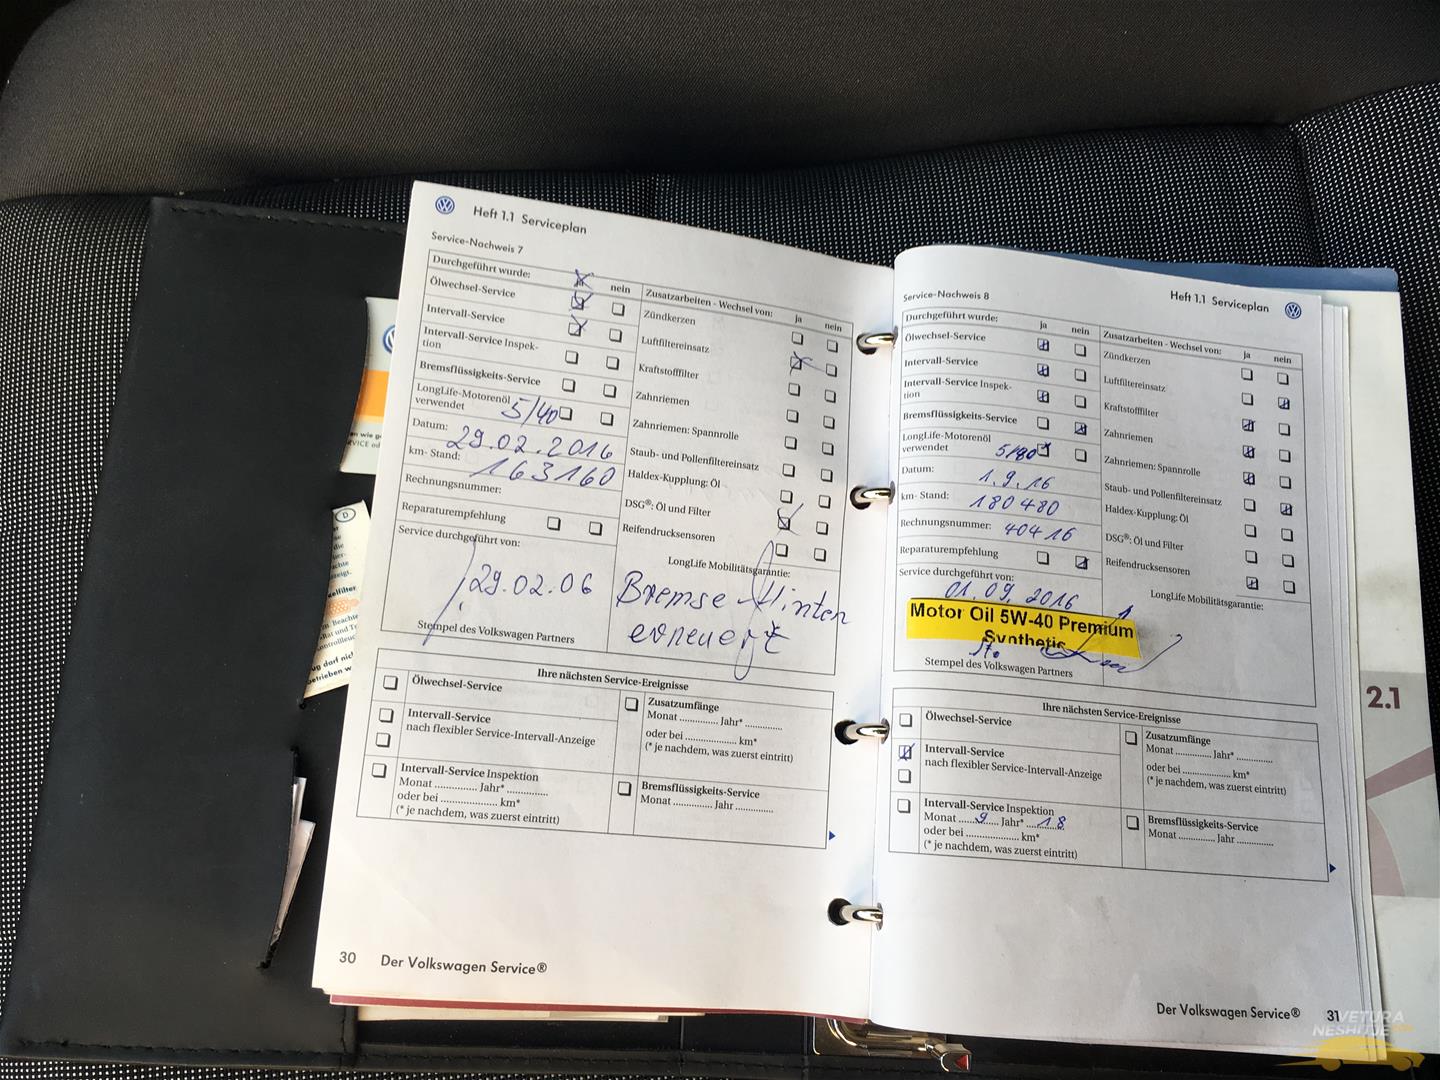 Heft 1.1 Serviceplan
Service-Nachweis 7
Durchgeführt wurde:
nein
Ölwechsel-Service
Intervall-Service
Intervall-Service Inspek-
tion
Bremsflüssigkeits-Service
LongLife-Motorenöl
verwendet 5/40
Datum: 29.02.2016
km- Stand: 163160
Rechnungsnummer:
Reparaturempfehlung
Service durchgeführt von:
29.02.06
Stempel des Volkswagen Partners
Zusatzarbeiten - Wechsel von: ja nein
Zündkerzen
Luftfiltereinsatz
Kraftstofffilter
Zahnriemen
Zahnriemen: Spannrolle
Staub- und Pollenfiltereinsatz
Haldex-Kupplung: Öl
DSG®: Öl und Filter
Reifendrucksensoren
LongLife Mobilitätsgarantie:
Bremse Hinten
erneuert
Ihre nächsten Service-Ereignisse
Ölwechsel-Service
Intervall-Service
nach flexibler Service-Intervall-Anzeige
Intervall-Service Inspektion
Monat .............. Jahr* ..............
oder bei .................... km*
(* je nachdem, was zuerst eintritt)
Zusatzumfänge
Monat .............. Jahr* ..............
oder bei .................... km*
(* je nachdem, was zuerst eintritt)
Bremsflüssigkeits-Service
Monat .............. Jahr ..............
30 Der Volkswagen Service®
Service-Nachweis 8
Heft 1.1 Serviceplan
Durchgeführt wurde: ja nein
Ölwechsel-Service
Intervall-Service
Intervall-Service Inspek-
tion
Bremsflüssigkeits-Service
LongLife-Motorenöl
verwendet
Datum: 1.9.16
km- Stand: 180480
Rechnungsnummer: 40416
Reparaturempfehlung
Service durchgeführt von:
01.09.2016
Motor Oil 5W-40 Premium
Synthetic
Stempel des Volkswagen Partners
Zusatzarbeiten - Wechsel von: ja nein
Zündkerzen
Luftfiltereinsatz
Kraftstofffilter
Zahnriemen
Zahnriemen: Spannrolle
Staub- und Pollenfiltereinsatz
Haldex-Kupplung: Öl
DSG®: Öl und Filter
Reifendrucksensoren
LongLife Mobilitätsgarantie:
Ihre nächsten Service-Ereignisse
Ölwechsel-Service
Intervall-Service
nach flexibler Service-Intervall-Anzeige
Intervall-Service Inspektion
Monat ......9...... Jahr* ....18
oder bei .................... km*
(* je nachdem, was zuerst eintritt)
Zusatzumfänge
Monat .............. Jahr* ..............
oder bei .................... km*
(* je nachdem, was zuerst eintritt)
Bremsflüssigkeits-Service
Monat .............. Jahr ..............
Der Volkswagen Service® 31
2.1
VETURA
NESHITJE